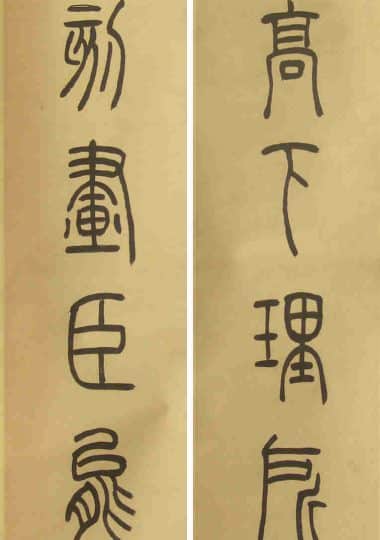 高下理
刻畫臣